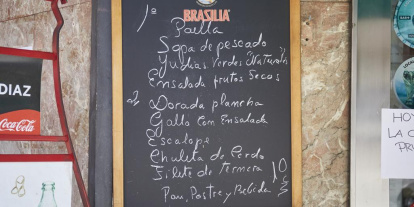 BRASILIA
1º
Paella
Sopa de pescado
Yudias Verdes (Natural
Ensalada frutos Secos
2º
Dorada plancha
Gallo con Ensalada
Escalope
Chuleta de Cerdo
Filete de Ternera
10
Pan, Postre y Bebida
DIAZ
Coca-Cola
HOY
LA C
PRI